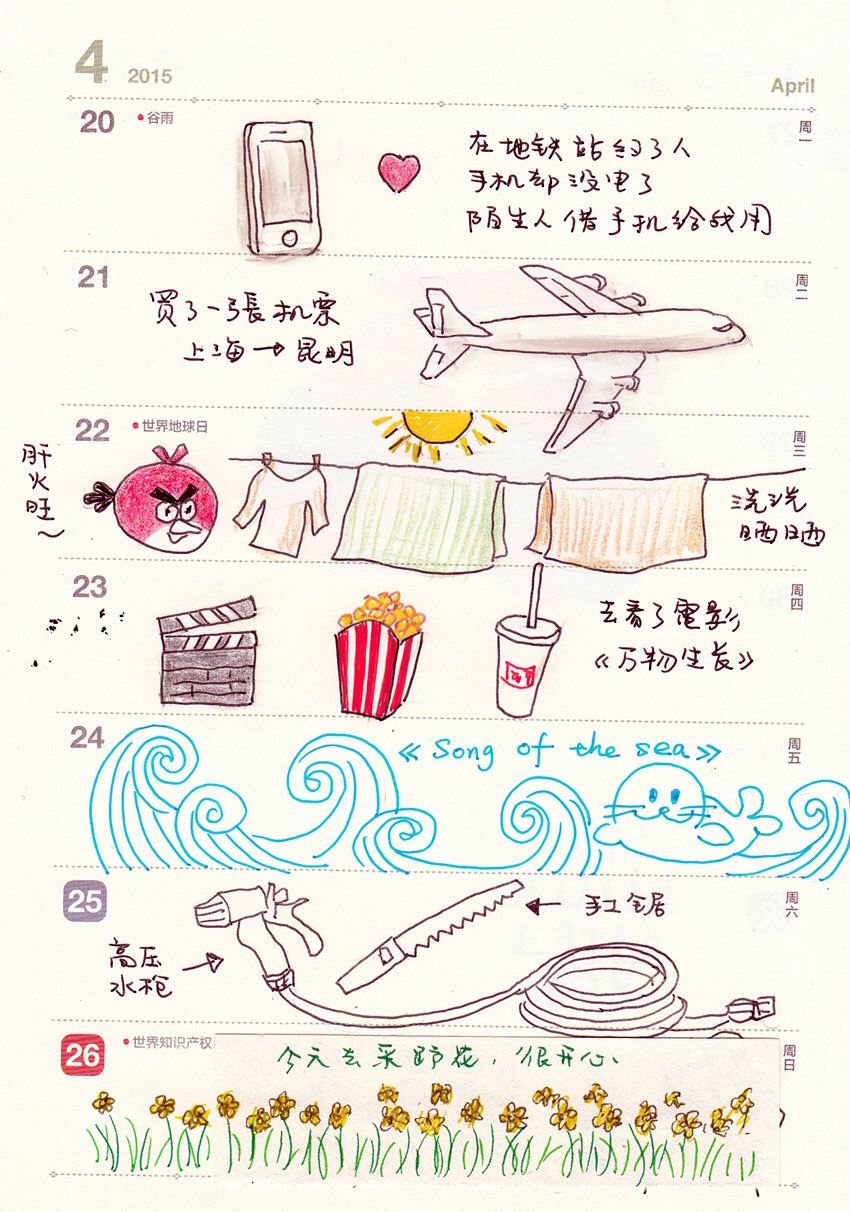 4 2015
April
20 谷雨 周一
在地铁站约了人
手机却没电了
陌生人借手机给我用
21 周二
買了一張机票
上海→昆明
22 世界地球日 周三
肝火旺~
洗洗
晒晒
23 周四
去看了電影
《万物生长》
24 周五
《Song of the sea》
25 周六
手工锯
高压
水枪
26 世界知识产权 周日
今天去采野花，很开心、